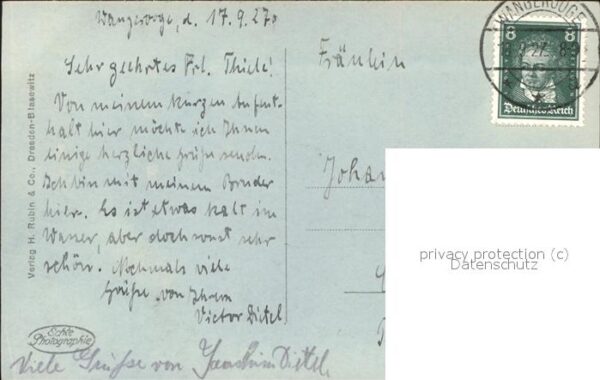 Wangerooge, d. 17.9.27.
Sehr geehrtes Frl. Thiele!
Von meinem kurzen Aufent-
halt hier möchte ich Ihnen
einige herzliche Grüße senden.
Ich bin mit meinem Bruder
hier. Es ist etwas kalt im
Wasser, aber doch sonst sehr
schön. Nochmals viele
Grüße von Ihrem
Victor Dietel
Viele Grüsse von Joachim Dietel
Verlag H. Rubin & Co., Dresden-Blasewitz
Echte
Photographie
Fräulein
Joha
WANGEROOGE
8 8
Deutsches Reich
privacy protection (c)
Datenschutz